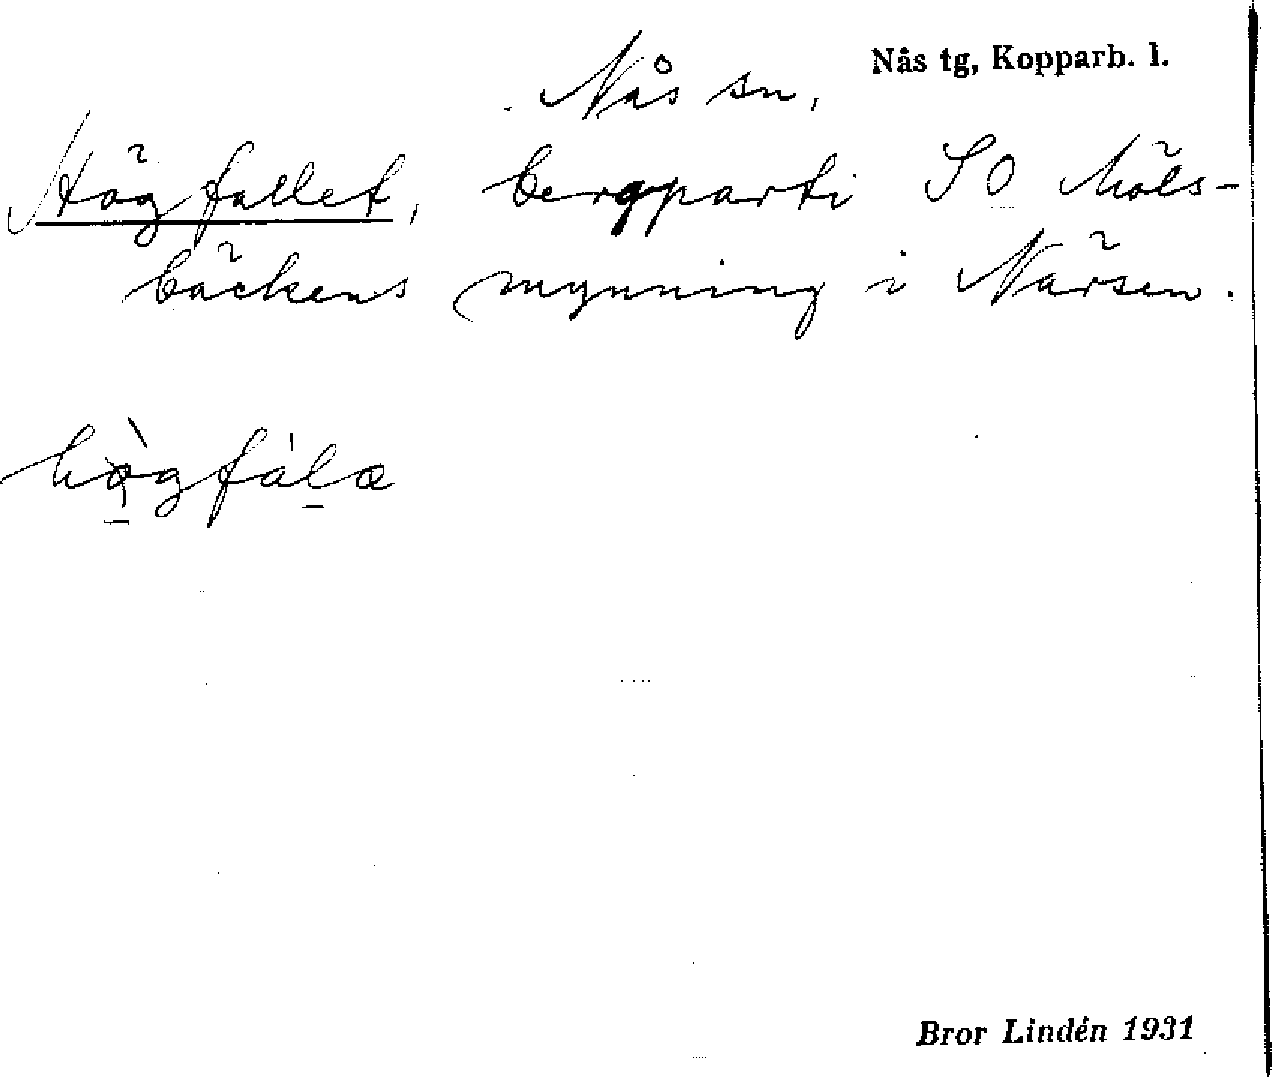 Nås tg, Kopparb. l.
Nås sn,
Högfallet, bergparti SO Möls-
bäckens mynning i Närsen.
hògfála
Bror Lindén 1931